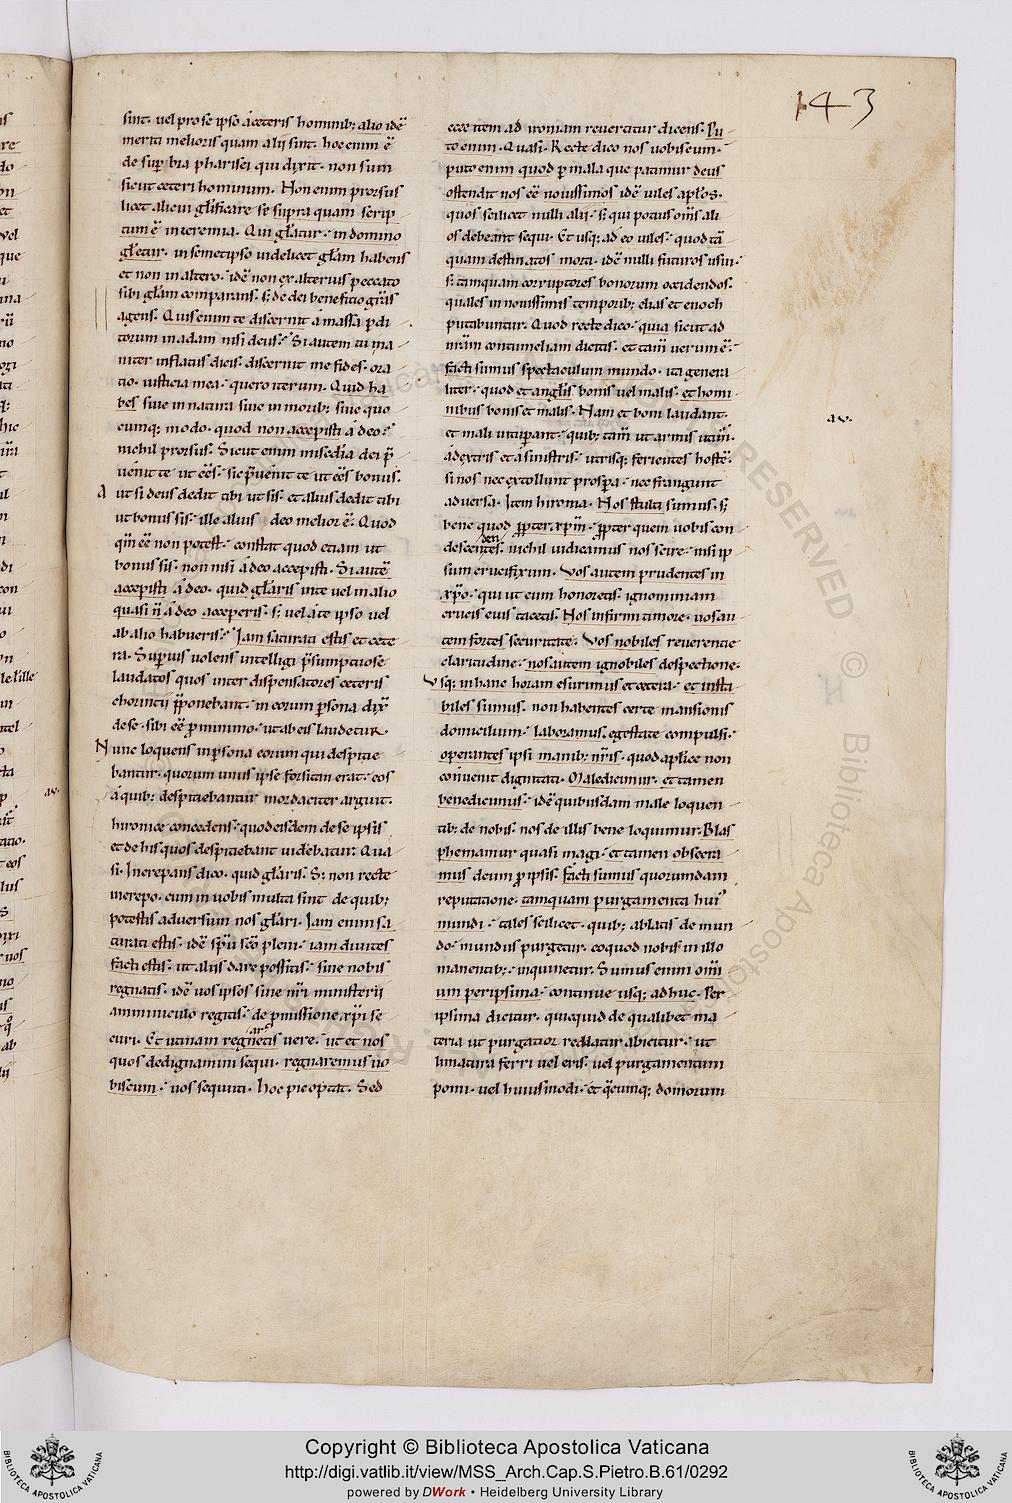 143
sint. uel pro se ipso a ceteris hominib; alio idē
meriti melioris quam alij sint. hoc enim ē
de supbia pharisei qui dixit. non sum
sicut ceteri hominum. Non enim prorsus
licet alicui glificare se supra quam scrip
tum ē in ieremia. Qui glatur. in domino
gletur. in semetipso uidelicet glam habens
et non in altero. idē non ex alterius peccato
sibi glam comparans. s; de dei beneficio grās
agens. Quis enim te discernit a massa pdi
torum in adam nisi deus? Si autem tu ina
niter inflatus dicis. discernit me fides. ora
tio. iusticia mea. quero iterum. Quid ha
bes siue in natura siue in morib; siue quo
cumq; modo. quod non accepisti a deo?
nichil prorsus. Sicut enim misedia dei p̄
uenit te ut eēs. sic puenit te ut eēs bonus.
A ut si deus dedit tibi ut sis. et alius dedit tibi
ut bonus sis. ille alius deo melior ē. Quod
qm eē non potest. constat quod etiam ut
bonus sis. non nisi a deo accepisti. Si autē
accepisti a deo. quid glaris in te uel in alio
quasi n a deo acceperis. s; uel a te ipso uel
ab alio habueris? Iam saturati estis et cete
ra. Supius uolens intelligi psumptuose
laudatos quos inter dispensatores ceteris
chorintij pponebant. in eorum psona dix
de se. sibi eē p minimo. ut ab eis laudetur.
N unc loquens in psona eorum qui despitie
bantur. quorum unus ipse forsitan erat. eos
a quib; despitiebantur mordaciter arguit.
hironice concedens. quod eisdem de se ipsis
et de his quos despitiebant uidebatur. Qua
si. Increpans dico. quid glaris. S; non recte
increpo. cum in uobis multa sint de quib;
potestis aduersum nos glari. Iam enim sa
turati estis. idē spu sco pleni. iam diuites
facti estis. ut alijs dare possitis. sine nobis
regnatis. idē uos ipsos sine nri ministerij
amminiculo regitis. de pmissione xpi se
curi. Et utinam regnetis uere. ut et nos
quos dedignamini sequi. regnaremus uo
biscum. uos sequuti. hoc pie optat. Sed
ecce item ad ironiam reuertitur dicens. Pu
to enim. Quasi. Recte dico nos uobiscum.
puto enim quod p mala que patimur deus
ostendit nos eē nouissimos idē uiles aplos.
quos scilicet nulli alij. s; qui potius oms ali
os debeant sequi. Et usq; ad eo uiles. quod tā
quam destinatos morti. idē nulli futuros usui.
s; tamquam corruptores bonorum occidendos.
quales in nouissimis temporib; elias et enoch
putabuntur. Quod recte dico. quia sicut ad
nram contumeliam dicitis. et tam uerum ē.
facti sumus spectaculum mundo. ita genera
liter. quod et anglis bonis uel malis. et homi
nibus bonis et malis. Nam et boni laudant.
et mali uituperant. quib; tam ut armis utim.
a dextris et a sinistris. utrisq; ferientes hostē.
si nos nec extollunt prospa. nec frangunt
aduersa. Item hironia. Nos stulti sumus. s;
bene quod ppter xpm. ppter quem uobis con
den
descentes. nichil iudicamus nos scire. nisi ip
sum crucifixum. Uos autem prudentes in
xpo. qui ut eum honoretis. ignominiam
crucis eius tacetis. Nos infirmi timore. uos au
tem fortes securitate. Uos nobiles reuerentie
claritudine. nos autem ignobiles despectione.
U sq; in hanc horam esurimus et cetera. et insta
biles sumus. non habentes certe mansionis
domicilium. laboramus. egestate compulsi.
operantes ipsi manib; nris. quod aplice non
conuenit dignitati. Maledicimur. et tamen
benedicimus. idē quibusdam male loquen
tib; de nobis. nos de illis bene loquimur. Blas
phemamur quasi magi. et tamen obsecra
mus deum p ipsis. facti sumus quorumdam
reputatione. tamquam purgamenta hui
mundi. tales scilicet. quib; ablatis de mun
do. mundus purgetur. eo quod nobis in illo
manentib;. inquinetur. Sumus enim omi
um peripsima. continue usq; ad huc. Per
ipsima dicitur. quicquid de qualibet ma
teria ut purgatior reddatur abicitur. ut
limatura ferri uel eris. uel purgamentum
pomi. uel huiusmodi. et qcumq; domorum